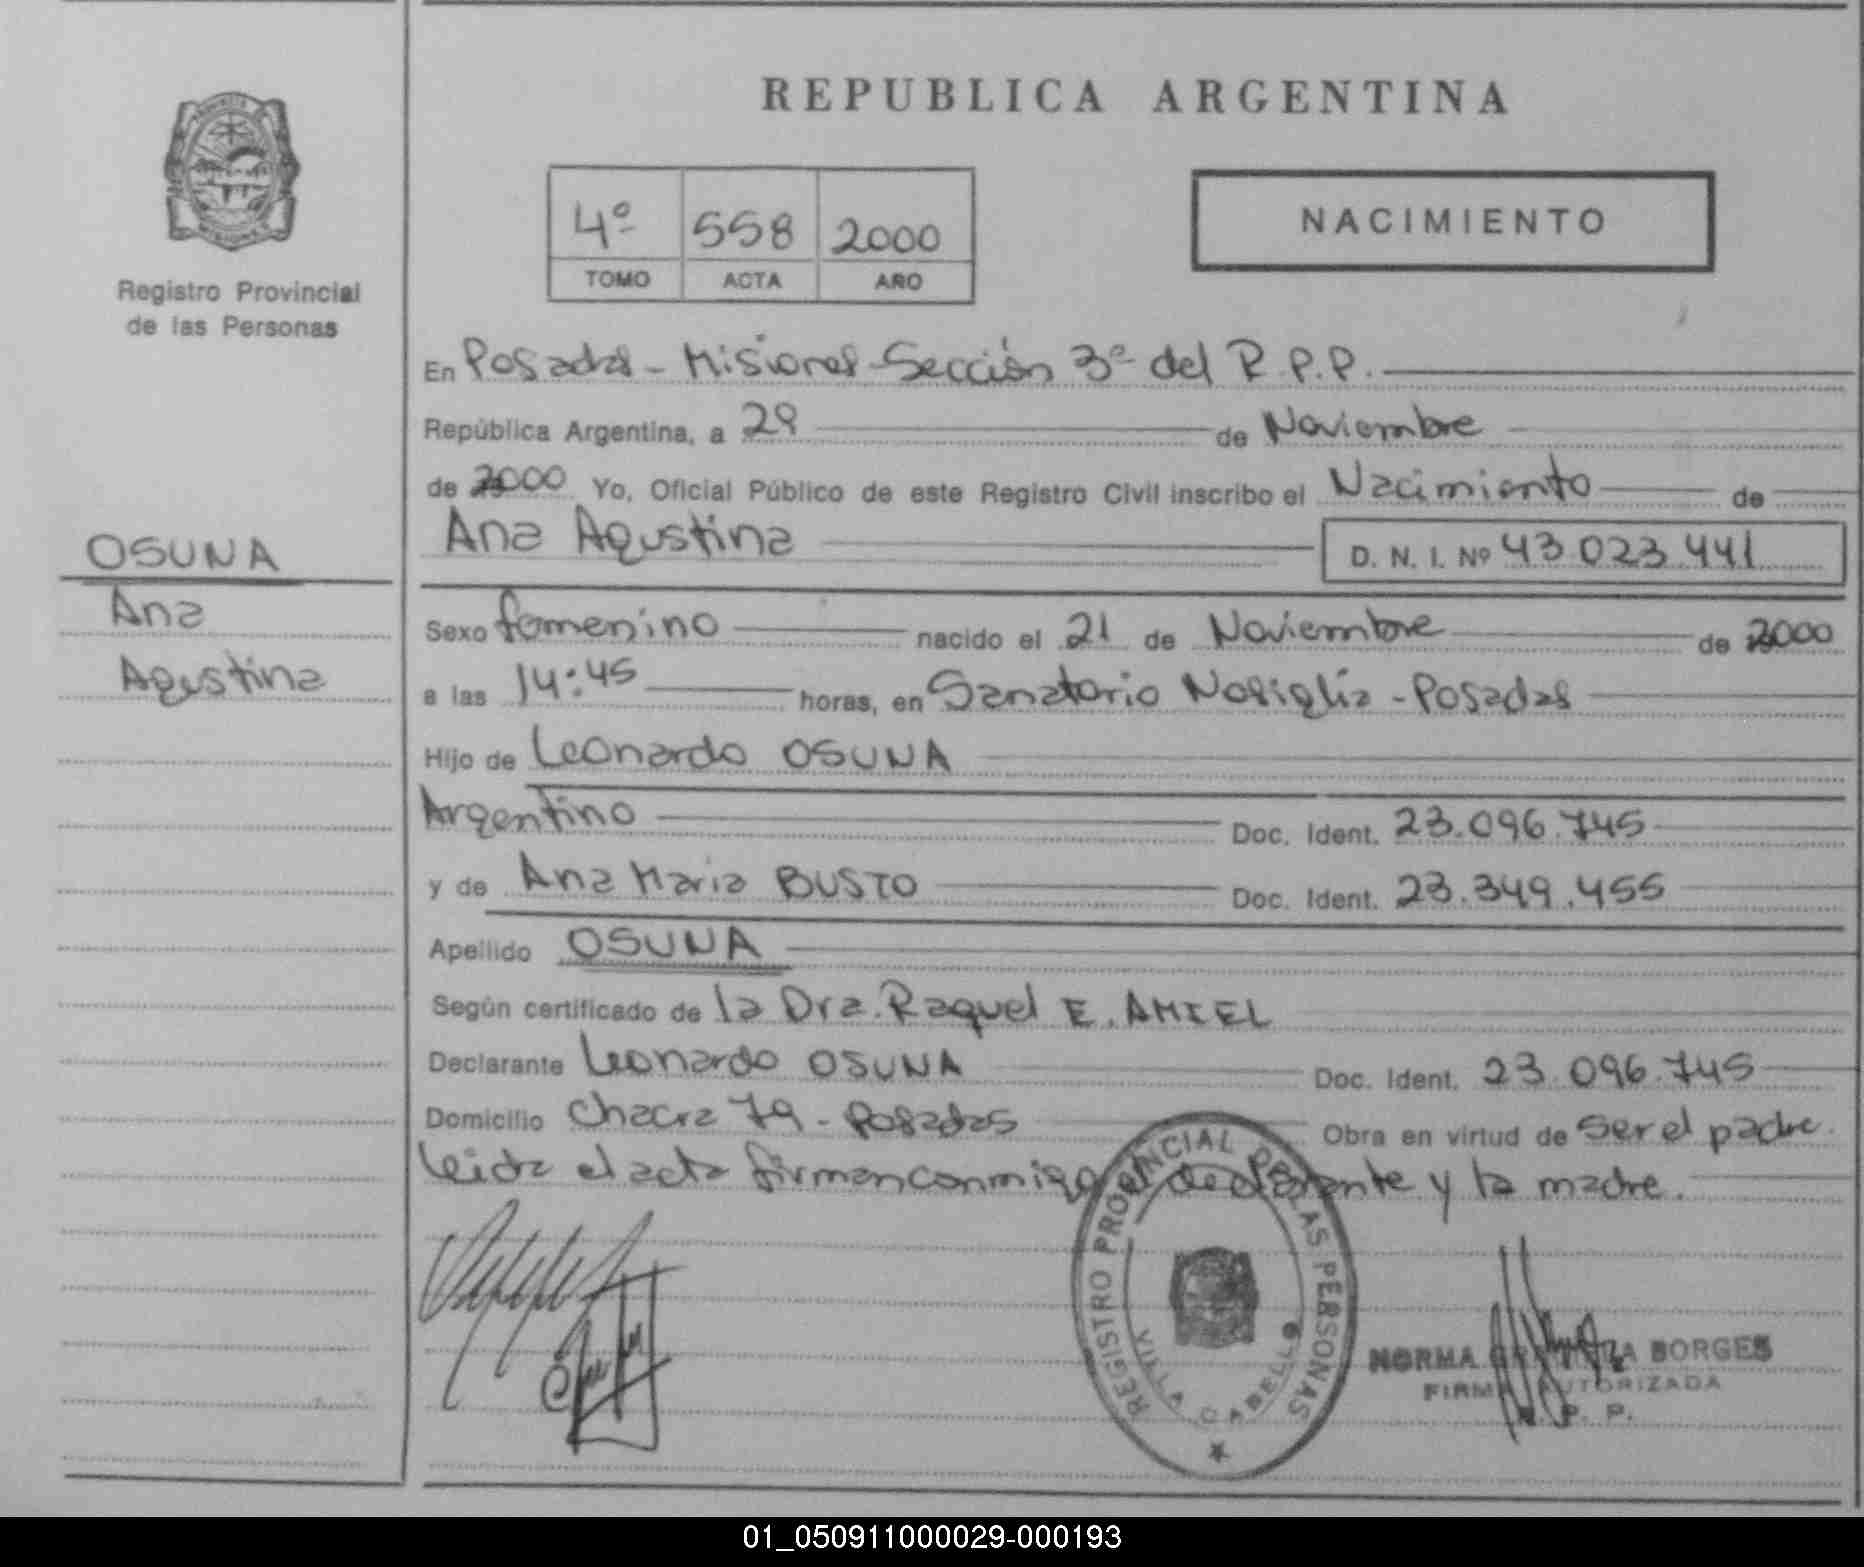 REPUBLICA ARGENTINA
4º 558 2000
TOMO ACTA AÑO
NACIMIENTO
MISIONES
Registro Provincial
de las Personas
En Posadas - Misiones - Sección 3ª del R.P.P.
República Argentina, a 29 de Noviembre
de 2000 Yo, Oficial Público de este Registro Civil inscribo el Nacimiento de
Ana Agustina D. N. I. Nº 43.023.441
OSUNA
Ana
Agustina
Sexo femenino nacido el 21 de Noviembre de 2000
a las 14:45 horas, en Sanatorio Nosiglia - Posadas
Hijo de Leonardo OSUNA
Argentino Doc. Ident. 23.096.745
y de Ana Maria BUSTO Doc. Ident. 23.349.455
Apellido OSUNA
Según certificado de la Dra. Raquel E. AMIEL
Declarante Leonardo OSUNA Doc. Ident. 23.096.745
Domicilio Chacra 79 - Posadas Obra en virtud de ser el padre.
leida el acta firman conmigo el declarante y la madre.
REGISTRO PROVINCIAL DE LAS PERSONAS
VILLA CABELLO
NORMA BORGES
FIRMA AUTORIZADA
R. P. P.
01_050911000029-000193